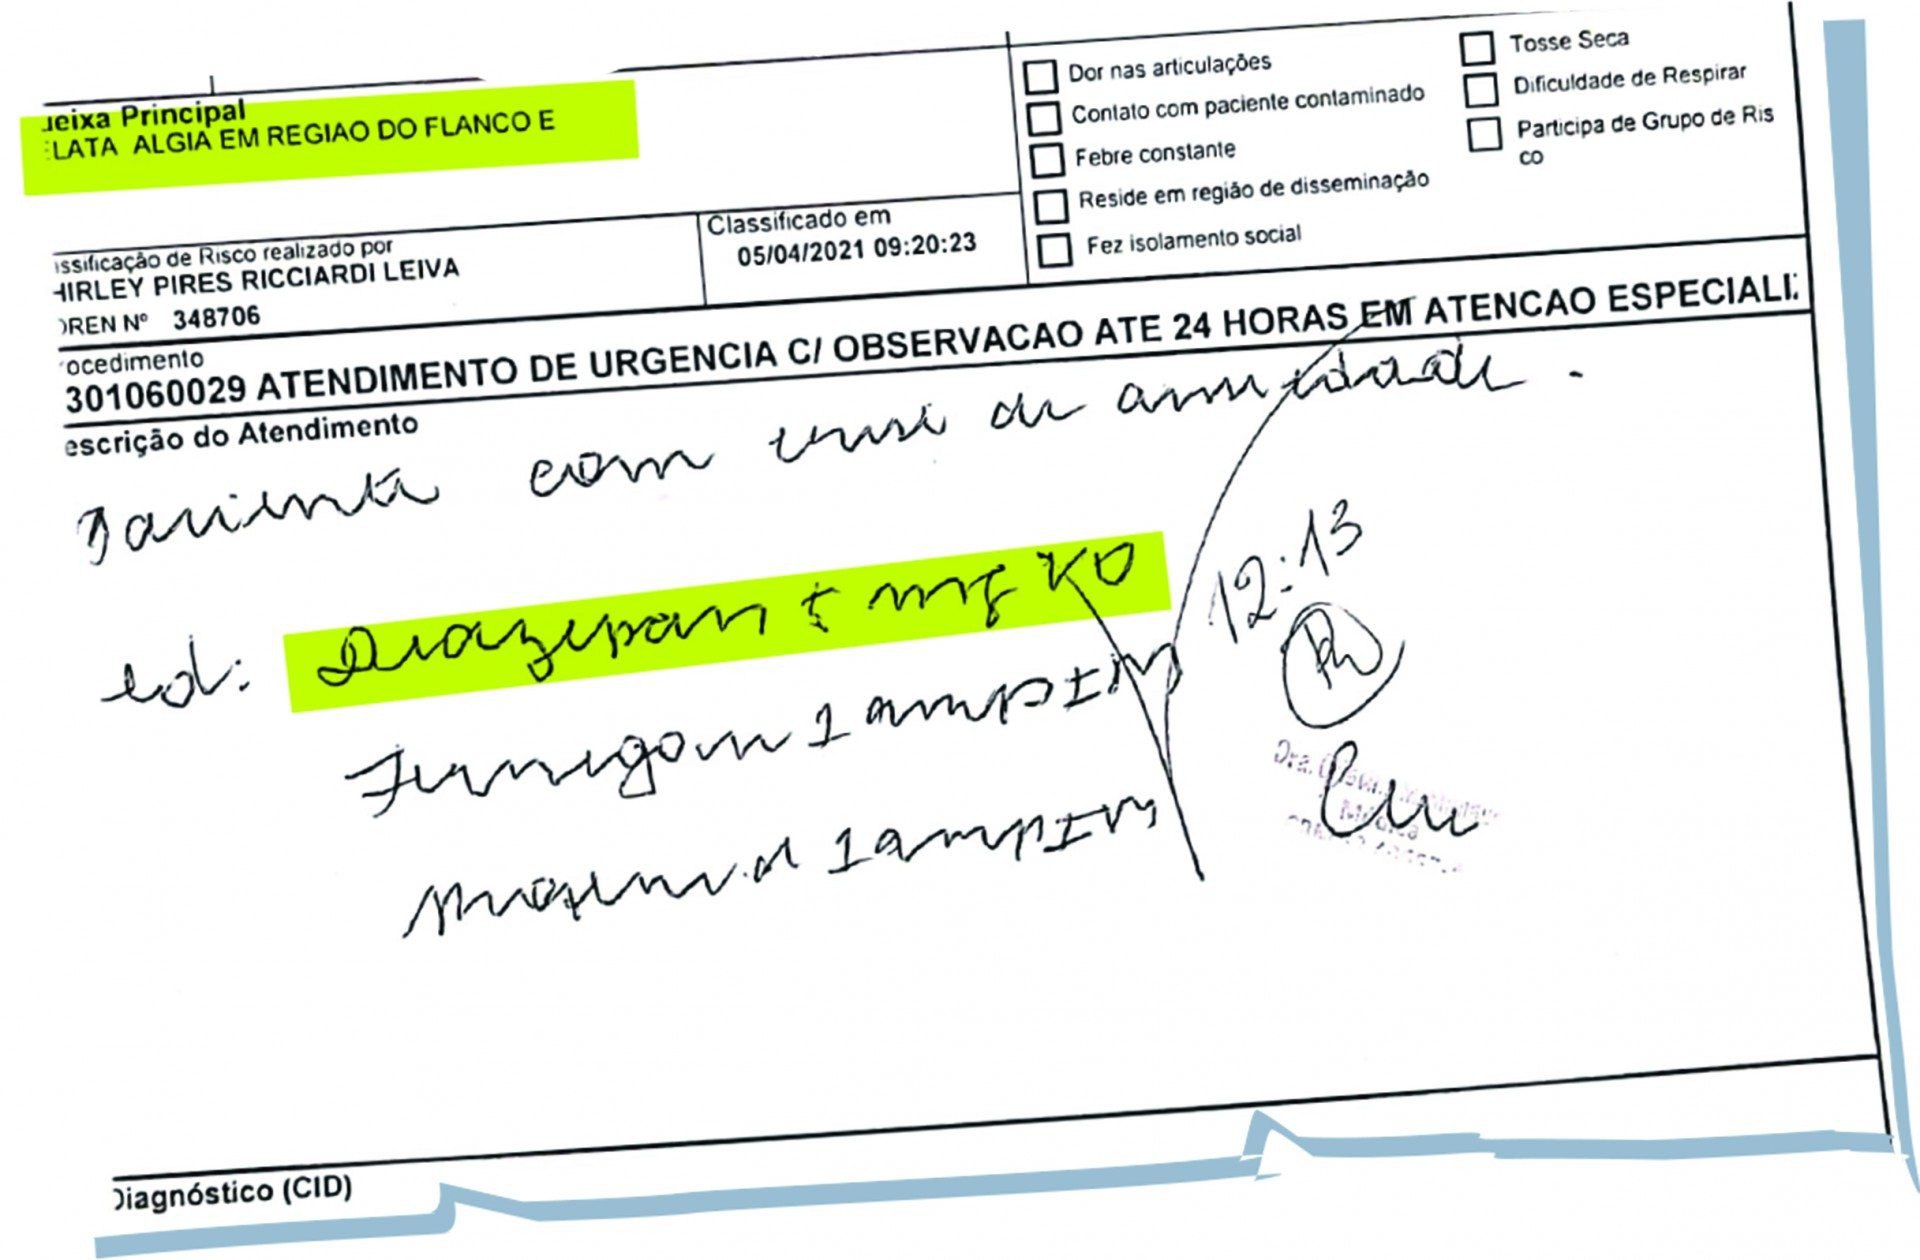 eixa Principal
LATA ALGIA EM REGIAO DO FLANCO E
Dor nas articulações
Contato com paciente contaminado
Febre constante
Reside em região de disseminação
Fez isolamento social
Tosse Seca
Dificuldade de Respirar
Participa de Grupo de Ris
co
ssificação de Risco realizado por
HIRLEY PIRES RICCIARDI LEIVA
OREN Nº 348706
Classificado em
05/04/2021 09:20:23
ocedimento
301060029 ATENDIMENTO DE URGENCIA C/ OBSERVACAO ATE 24 HORAS EM ATENCAO ESPECIALI
escrição do Atendimento
Paciente com crise de ansiedade.
cd: Diazepan 5 mg VO
Fenergan 1 amp IM
1 amp IM
12:13
Dra.
Diagnóstico (CID)